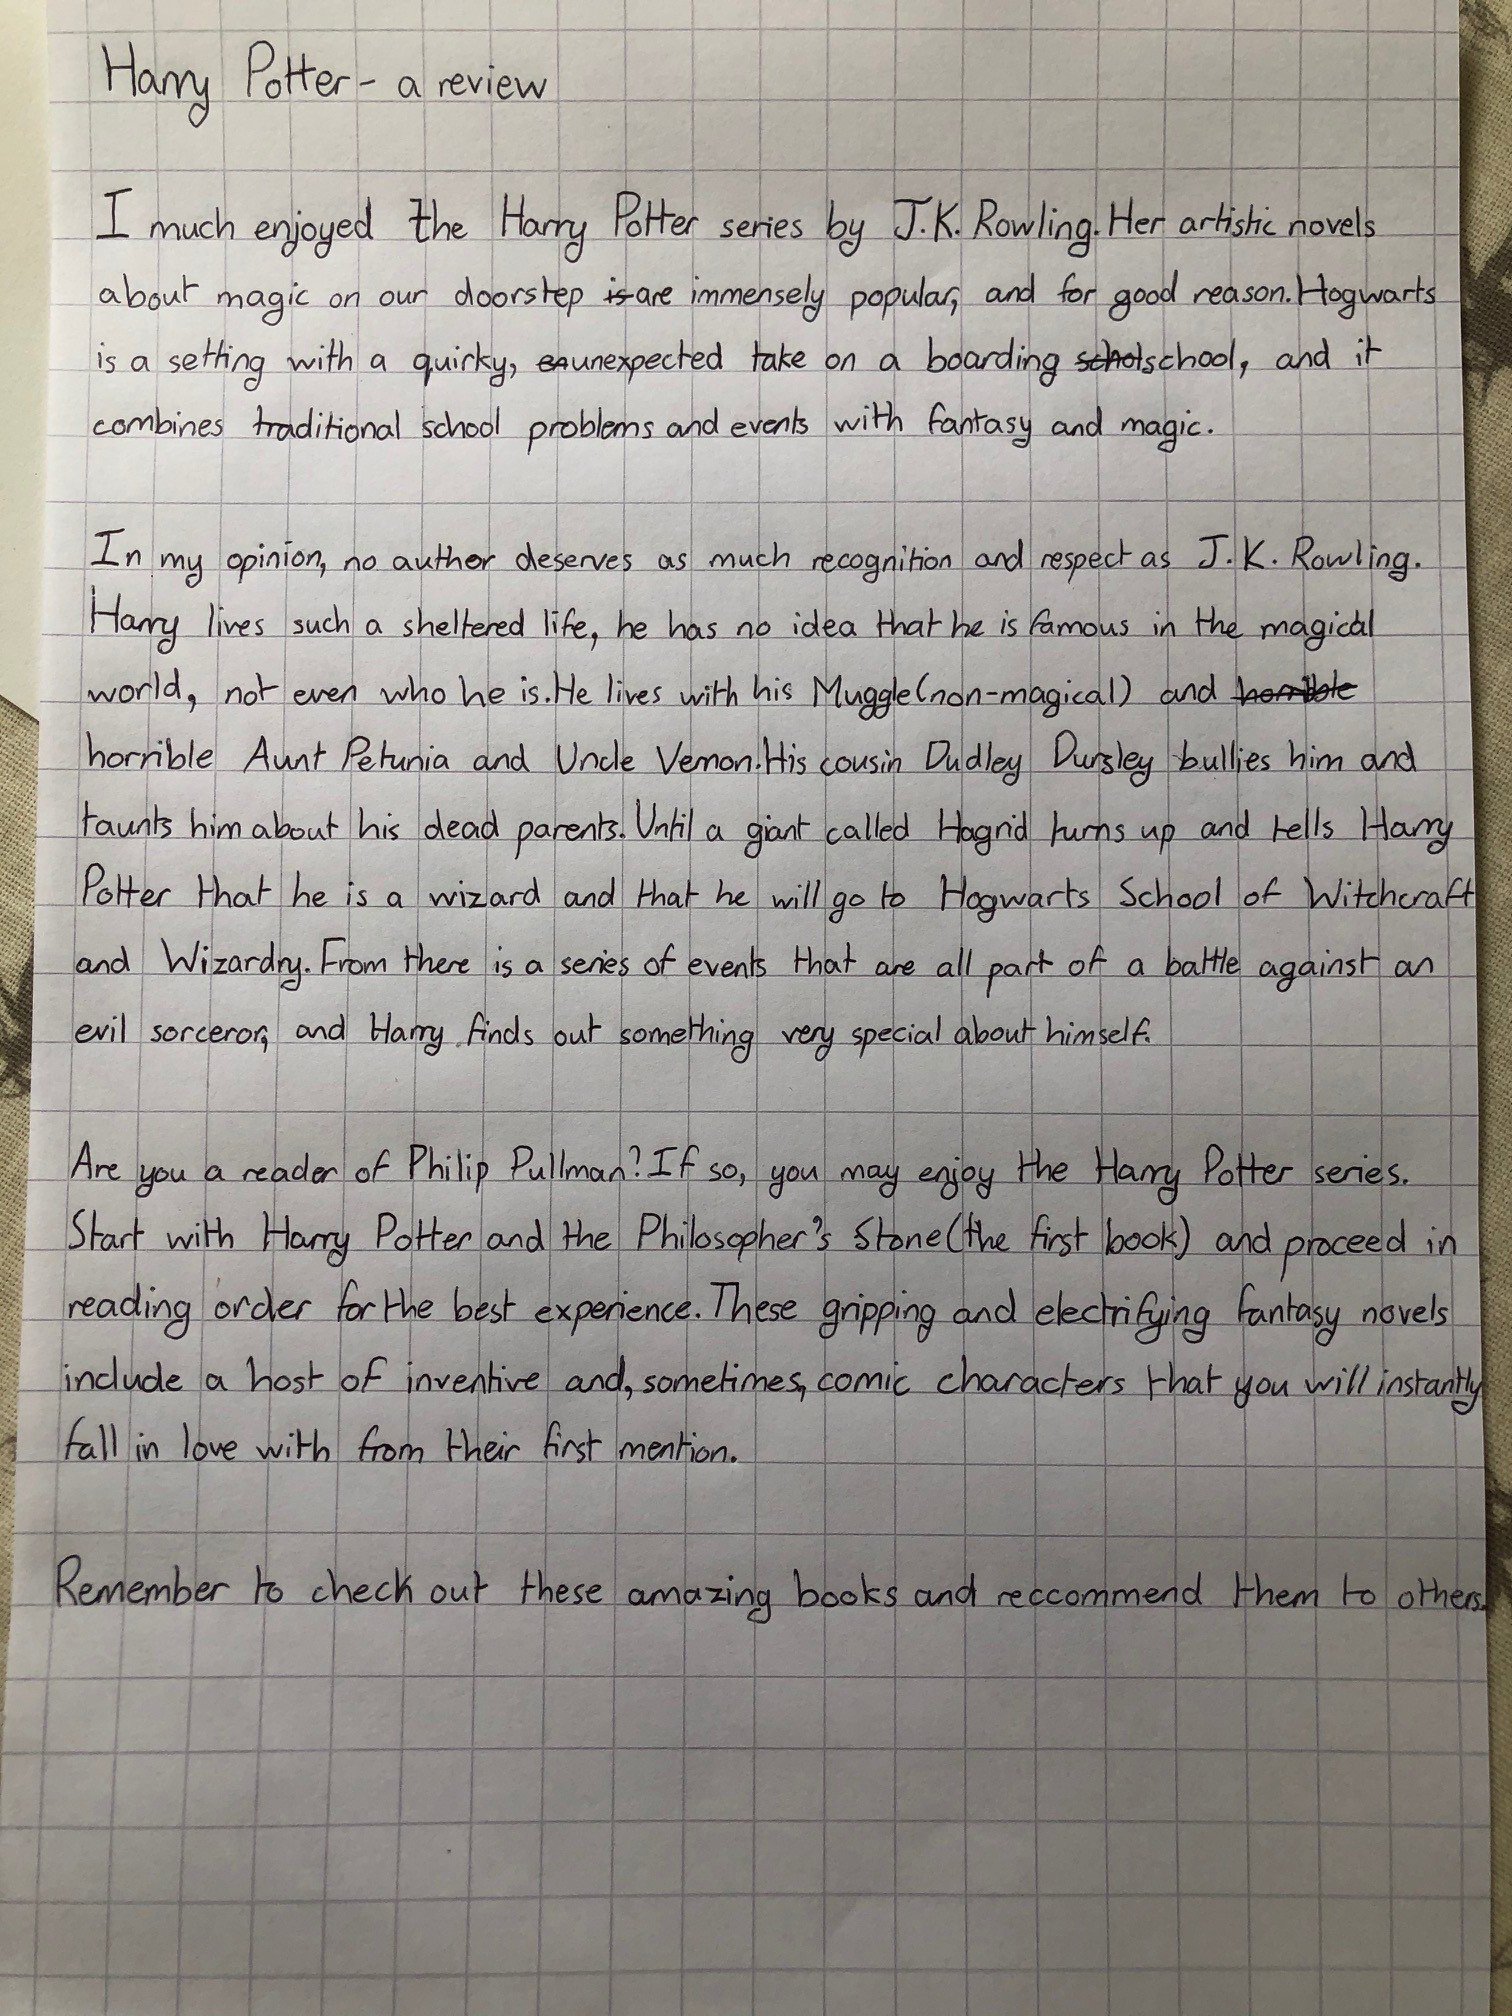 Harry Potter - a review
I much enjoyed the Harry Potter series by J.K. Rowling. Her artistic novels
about magic on our doorstep is are immensely popular, and for good reason. Hogwarts
is a setting with a quirky, unexpected take on a boarding schol school, and it
combines traditional school problems and events with fantasy and magic.
In my opinion, no author deserves as much recognition and respect as J.K. Rowling.
Harry lives such a sheltered life, he has no idea that he is famous in the magical
world, not even who he is. He lives with his Muggle (non-magical) and horrible
horrible Aunt Petunia and Uncle Vernon. His cousin Dudley Dursley bullies him and
taunts him about his dead parents. Until a giant called Hagrid turns up and tells Harry
Potter that he is a wizard and that he will go to Hogwarts School of Witchcraft
and Wizardry. From there is a series of events that are all part of a battle against an
evil sorceror, and Harry finds out something very special about himself.
Are you a reader of Philip Pullman? If so, you may enjoy the Harry Potter series.
Start with Harry Potter and the Philosopher's Stone (the first book) and proceed in
reading order for the best experience. These gripping and electrifying fantasy novels
include a host of inventive and, sometimes, comic characters that you will instantly
fall in love with from their first mention.
Remember to check out these amazing books and reccommend them to others.